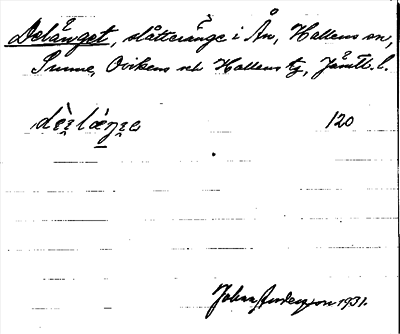 Delänget, slåtteränge i Ån, Hallens sn,
Sunne, Ovikens och Hallens tg, Jämtl. l.
dèẹlæŋẹa 120
Johan Anderson 1931.